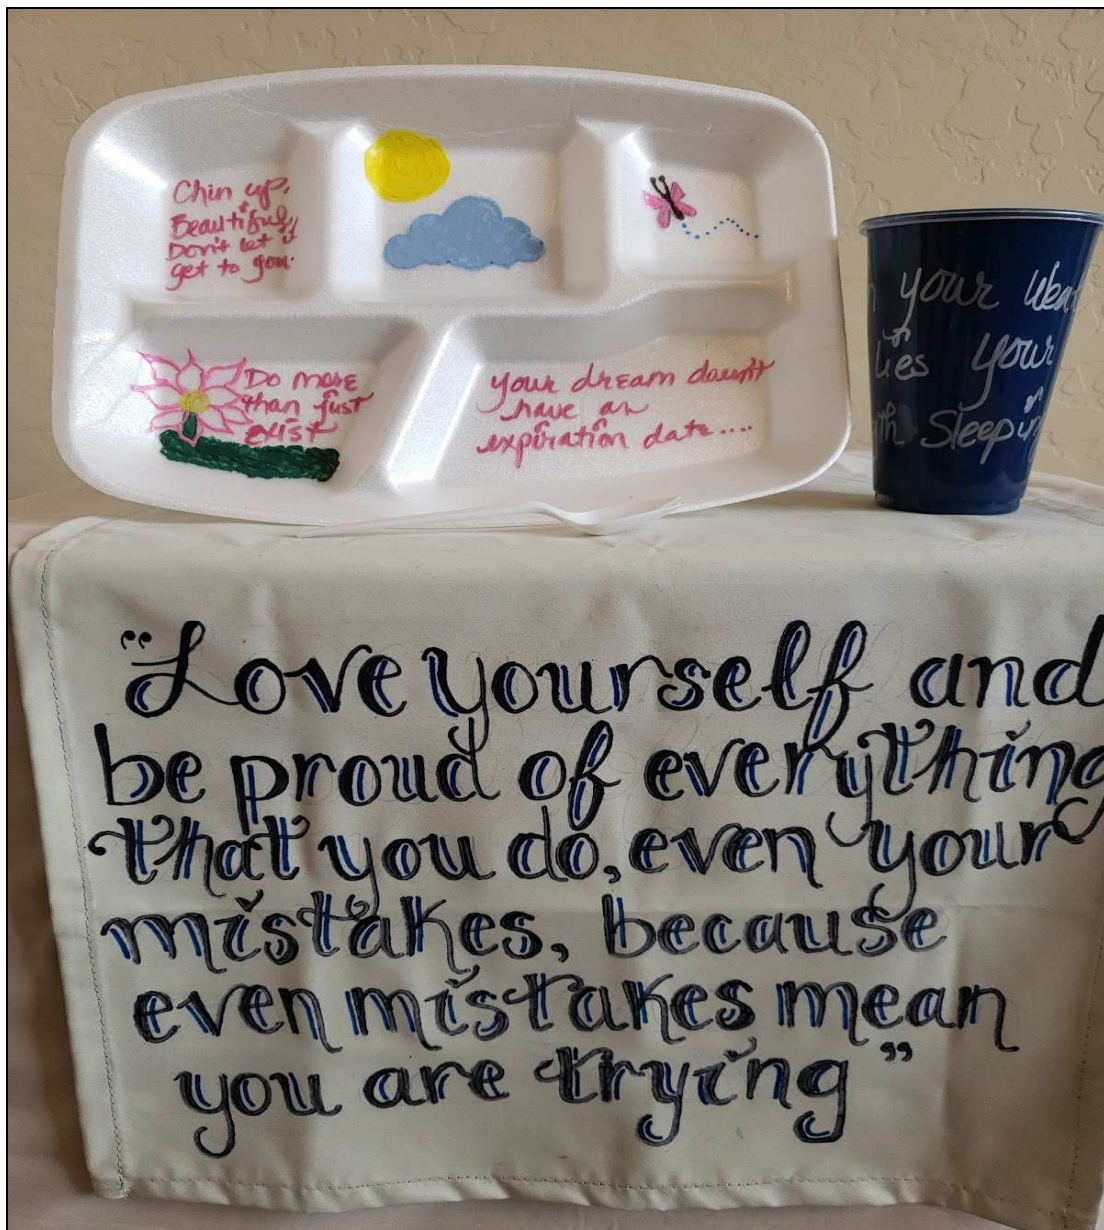 Chin up,
Beautiful,
Don't let it
get to you.
Do more
than just
exist
your dream doesn't
have an
expiration date....
your
lies your
Sleeping
"Love yourself and
be proud of everything
that you do, even your
mistakes, because
even mistakes mean
you are trying"